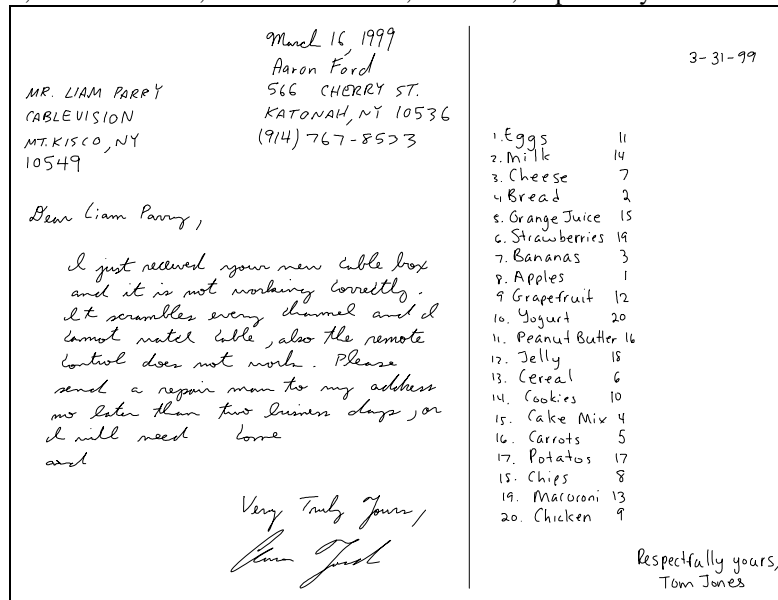 March 16, 1999
Aaron Ford
566 CHERRY ST.
KATONAH, NY 10536
(914) 767-8523
MR. LIAM PARRY
CABLEVISION
MT. KISCO, NY
10549
Dear Liam Parry,
I just received your new cable box
and it is not working correctly.
It scrambles every channel and I
cannot watch cable, also the remote
control does not work. Please
send a repair man to my address
no later than two business days, or
I will need come
and
Very Truly Yours,
Aaron Ford
3-31-99
1. Eggs 11
2. Milk 14
3. Cheese 7
4 Bread 2
5. Orange Juice 15
6. Strawberries 19
7. Bananas 3
8. Apples 1
9 Grapefruit 12
10. Yogurt 20
11. Peanut Butter 16
12. Jelly 18
13. Cereal 6
14. Cookies 10
15. Cake Mix 4
16. Carrots 5
17. Potatos 17
18. Chips 8
19. Macoroni 13
20. Chicken 9
Respectfully yours,
Tom Jones